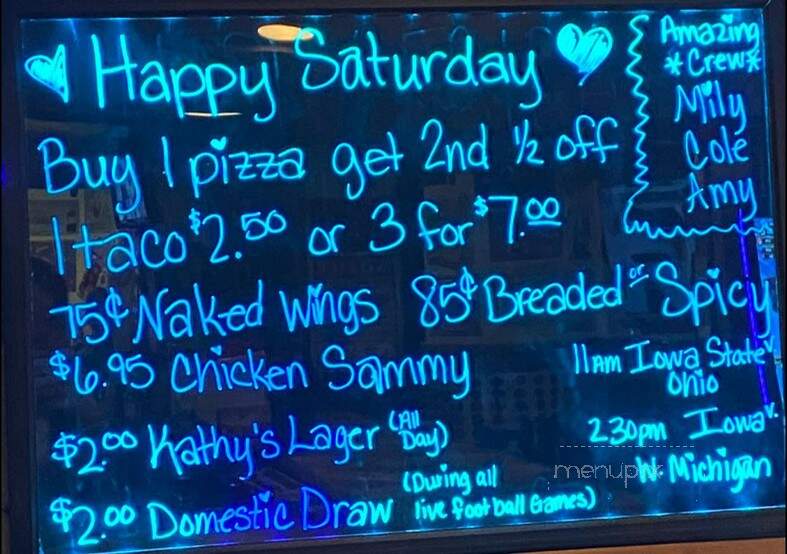 Happy Saturday
Buy 1 pizza get 2nd ½ off
1 taco $2.50 or 3 for $7.00
75¢ Naked Wings 85¢ Breaded or Spicy
$6.95 Chicken Sammy
$2.00 Kathy's Lager (All Day)
$2.00 Domestic Draw (During all live football Games)
Amazing
*Crew*
Mily
Cole
Amy
11Am Iowa State v.
Ohio
2:30pm Iowa v.
W. Michigan
menupix